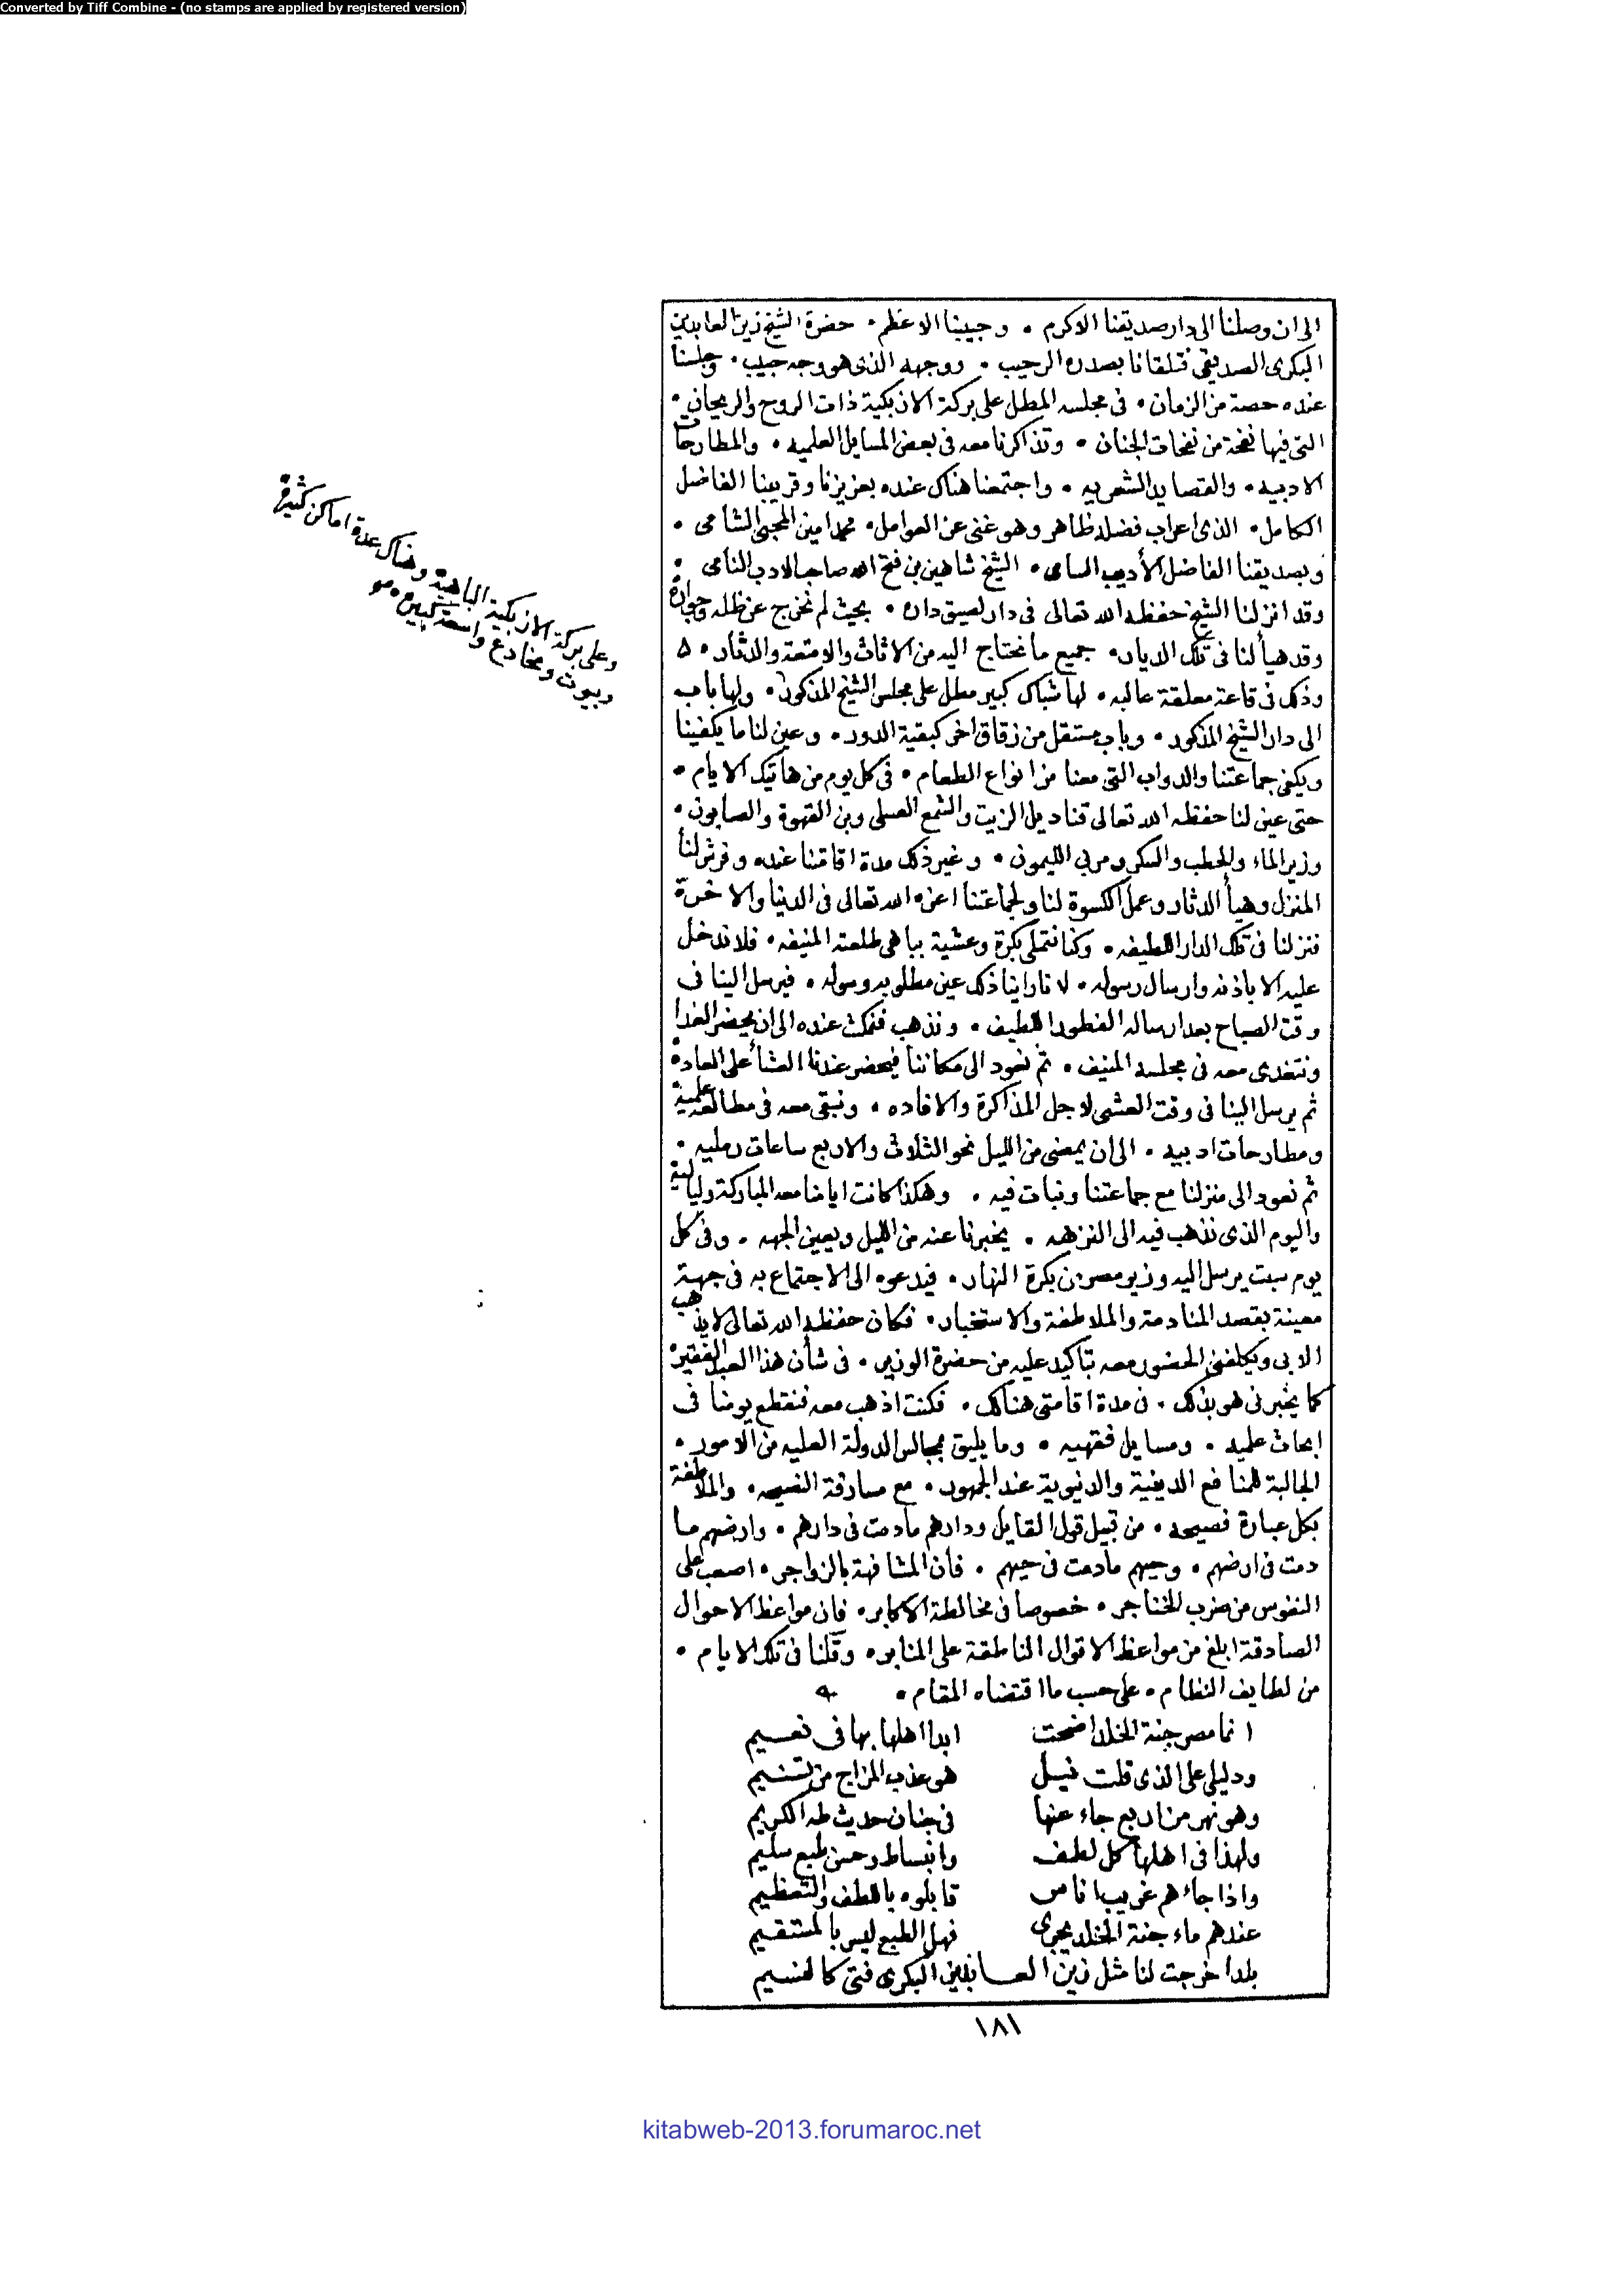 Converted by Tiff Combine - (no stamps are applied by registered version)
الى ان وصلنا الى دار صديقنا الاكرم • وحبيبنا الاعظم • حضرة الشيخ زين العابدين
البكرى الصديقى فتلقانا بصدره الرحيب • ووجهه الذى هو وجه حبيب • وجلسنا
عنده حصة من الزمان • فى مجلسه المطل على بركة الازبكية ذات الروح والريحان •
التى فيها نفحة من نفحات الجنان • وتذاكرنا معه فى بعض المسايل العلميه • والمطارحات
الادبيه • والقصايد الشعريه • واجتمعنا هناك عنده بعزيزنا وقريبنا الفاضل
الكامل • الذى اعراب فضله ظاهر وهو غنى عن العوامل • محمد امين المحبى الشامى •
وبصديقنا الفاضل الأديب السامى • الشيخ شاهين بن فتح الله صاحب الادب النامى •
وقد انزلنا الشيخ حفظه الله تعالى فى دار لصيق داره • بحيث لم نخرج عن ظله وجواره
وقد هيأ لنا فى تلك الديار • جميع ما نحتاج اليه من الاثاث والامتعة والدثار • ۵
وذلك فى قاعة معلقة عاليه • لها شباك كبير مطل على مجلس الشيخ المذكور • ولها باب
الى دار الشيخ المذكور • وباب مستقل من زقاق اخر كبقية الدور • وعين لنا ما يكفينا
ويكفى جماعتنا والدواب التى معنا من انواع الطعام • فى كل يوم من هاتيك الايام •
حتى عين لنا حفظه الله تعالى قناديل الزيت والشمع العسلى وبن القهوة والصابون •
وزير الماء والحطب والسكر ومربى الليمون • وغير ذلك مدة اقامتنا عنده وفرش لنا
المنزل وهيأ الدثار وعمل الكسوة لنا ولجماعتنا اعزه الله تعالى فى الدنيا والاخرة
فنزلنا فى تلك الدار اللطيفه • وكنا نتملى بكرة وعشية بباهى طلعته المنيفه • فلا ندخل
عليه الا باذنه وارسال رسوله • لانا راينا ذلك عين مطلوبه وسوله • فيرسل الينا فى
وقت الصباح بعد ارساله الفطور اللطيف • ونذهب فنمكث عنده الى ان يحضر الغدا
ونتغدى معه فى مجلسه المنيف • ثم نعود الى مكاننا فيحضر عندنا العشا على العادة
ثم يرسل الينا فى وقت العشى لاجل المذاكرة والافاده • ونبقى معه فى مطالعة علمية
ومطارحات ادبيه • الى ان يمضى من الليل نحو الثلاث والاربع ساعات رمليه •
ثم نعود الى منزلنا مع جماعتنا ونبات فيه • وهكذا كانت ايامنا معه المباركة ولياليه
واليوم الذى نذهب فيه الى النزهه • يخبرنا عنه من الليل ويعين الجهه • وفى كل
يوم سبت يرسل اليه وزير مصر من بكرة النهار • فيدعوه الى الاجتماع به فى جهة
معينة بقصد المنادمة والملاطفة والاستخبار • فكان حفظه الله تعالى لا يذهب
الا بى ويكلفنى الحضور معه بتأكيد عليه من حضرة الوزير • فى شأن هذا العبد الفقير
كما يخبرنى هو بذلك • فى مدة اقامتى هنالك • فكنت اذهب معه فنقطع يومنا فى
ابحاث علميه • ومسايل فقهيه • وما يليق بمجالس الدولة العليه من الامور •
الجالبة للمنافع الدينية والدنيوية عند الجمهور • مع مسارقة النصيحه • والملاطفة
بكل عبارة فصيحه • من قبيل قول القايل ودارهم ما دمت فى دارهم • وارضهم ما
دمت فى ارضهم • وحيهم ما دمت فى حيهم • فان المشافهة بالزواجر • اصعب على
النفوس من ضرب الخناجر • خصوصا فى مخالطة الاكابر • فان مواعظ الاحوال
الصادقة ابلغ من مواعظ الاقوال الناطقة على المنابر • وقلنا فى تلك الايام •
من لطايف النظام • على حسب ما اقتضاه المقام •
انما مصر جنة الخلد اضحت ابدا اهلها بها فى نعيم
ودليلى على الذى قلت نيل هو عذب المزاج من تسنيم
وهو نهر من اربع جاء عنها فى جنان حديث طه الكريم
ولهذا فى اهلها كل لطف وانبساط وحسن طبع سليم
واذا جاءهم غريب اناس قابلوه باللطف والتعظيم
عندهم ماء جنة الخلد يجرى فهل الطبع ليس بالمستقيم
بلد اخرجت لنا مثل زين العابدين البكرى فتى كالنسيم
١٨١
وعلى بركة الازبكية الباهية وهناك عدة اماكن كثيرة
وبيوت ومخادع واسعة كبيرة
kitabweb-2013.forumaroc.net